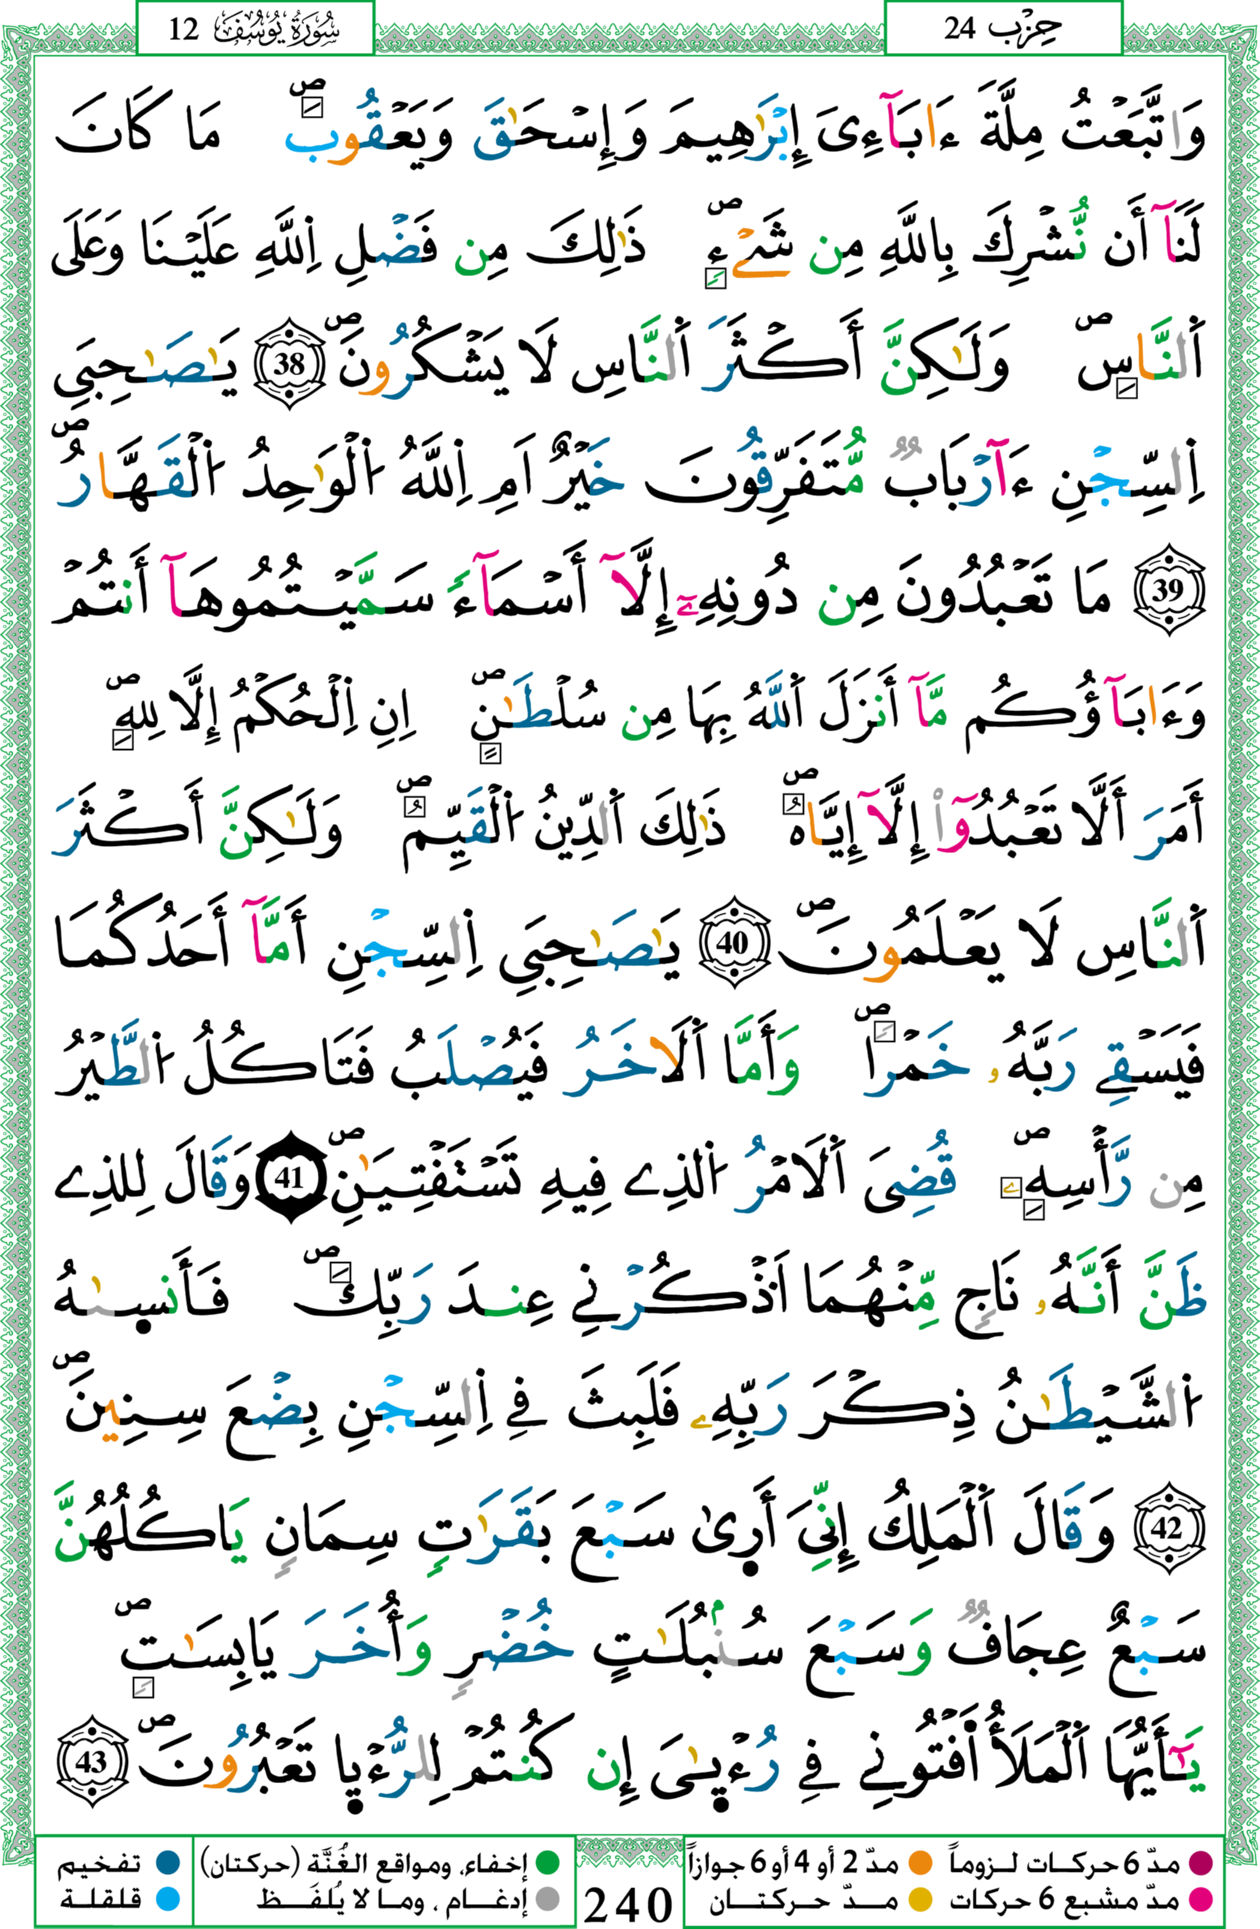 حِزْب 24
سُورَةُ يُوسُفَ 12
وَاتَّبَعْتُ مِلَّةَ ءَابَآءِىَ إِبْرَٰهِيمَ وَإِسْحَٰقَ وَيَعْقُوبَ ۖ مَا كَانَ
لَنَآ أَن نُّشْرِكَ بِاللَّهِ مِن شَىْءٍ ۖ ذَٰلِكَ مِن فَضْلِ اِللَّهِ عَلَيْنَا وَعَلَى
اَلنَّاسِ ۖ وَلَٰكِنَّ أَكْثَرَ اَلنَّاسِ لَا يَشْكُرُونَ ۖ 38 يَٰصَٰحِبَىِ
اِلسِّجْنِ ءَآرْبَابٌ مُّتَفَرِّقُونَ خَيْرٌ اَمِ اِللَّهُ اُلْوَٰحِدُ اُلْقَهَّارُ ۖ
39 مَا تَعْبُدُونَ مِن دُونِهِۦٓ إِلَّآ أَسْمَآءً سَمَّيْتُمُوهَآ أَنتُمْ
وَءَابَآؤُكُم مَّآ أَنزَلَ اَللَّهُ بِهَا مِن سُلْطَٰنٍ ۖ اِنِ اِلْحُكْمُ إِلَّا لِلهِ ۖ
أَمَرَ أَلَّا تَعْبُدُوٓاْ إِلَّآ إِيَّاهُ ۖ ذَٰلِكَ اَلدِّينُ اُلْقَيِّمُ ۖ وَلَٰكِنَّ أَكْثَرَ
اَلنَّاسِ لَا يَعْلَمُونَ ۖ 40 يَٰصَٰحِبَىِ اِلسِّجْنِ أَمَّآ أَحَدُكُمَا
فَيَسْقِے رَبَّهُۥ خَمْرًا ۖ وَأَمَّا اَلَاخَرُ فَيُصْلَبُ فَتَاكُلُ اُلطَّيْرُ
مِن رَّأْسِهِۦ ۖ قُضِىَ اَلَامْرُ اُلذِے فِيهِ تَسْتَفْتِيَٰنِ ۖ 41 وَقَالَ لِلذِے
ظَنَّ أَنَّهُۥ نَاجٍ مِّنْهُمَا اَذْكُرْنِے عِندَ رَبِّكَ ۖ فَأَنسِىٰهُ
اُلشَّيْطَٰنُ ذِكْرَ رَبِّهِۦ فَلَبِثَ فِے اِلسِّجْنِ بِضْعَ سِنِينَ ۖ
42 وَقَالَ اَلْمَلِكُ إِنِّىَ أَرِىٰ سَبْعَ بَقَرَٰتٍ سِمَانٍ يَاكُلُهُنَّ
سَبْعٌ عِجَافٌ وَسَبْعَ سُنۢبُلَٰتٍ خُضْرٍ وَأُخَرَ يَابِسَٰتٍ ۖ
يَٰٓأَيُّهَا اَلْمَلَأُ اَفْتُونِے فِے رُءْيِىٰىَ إِن كُنتُمْ لِلرُّءْيِا تَعْبُرُونَ ۖ 43
مدّ 6 حركات لزوماً مدّ 2 أو 4 أو 6 جوازاً
مدّ مشبع 6 حركات مدّ حركتان
240
إخفاء، ومواقع الغُنَّة (حركتان) تفخيم
إدغام ، وما لا يُلفَظ قلقلة